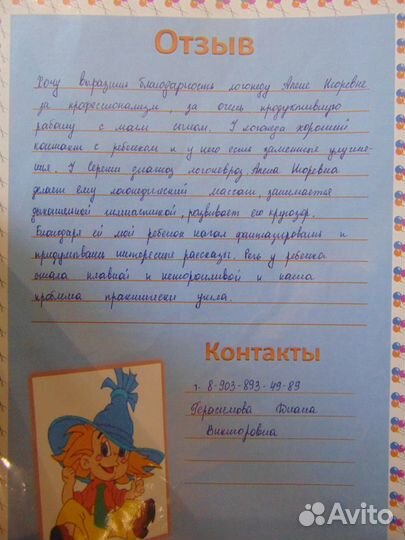 Отзыв
Хочу выразить благодарность логопеду Алене Игоревне
за профессионализм, за очень продуктивную
работу с моим сыном. У логопеда хороший
контакт с ребенком и у него есть заметные улучше-
ния. У Сережи диагноз логоневроз, Алена Игоревна
делает ему логопедический массаж, занимается
дыхательной гимнастикой, развивает его кругозор.
Благодаря ей мой ребенок начал фантазировать и
придумывать интересные рассказы. Речь у ребенка
стала плавной и неторопливой и наша
проблема практически ушла.
Контакты
т. 8-903-893-49-89
Герасимова Диана
Викторовна
Avito